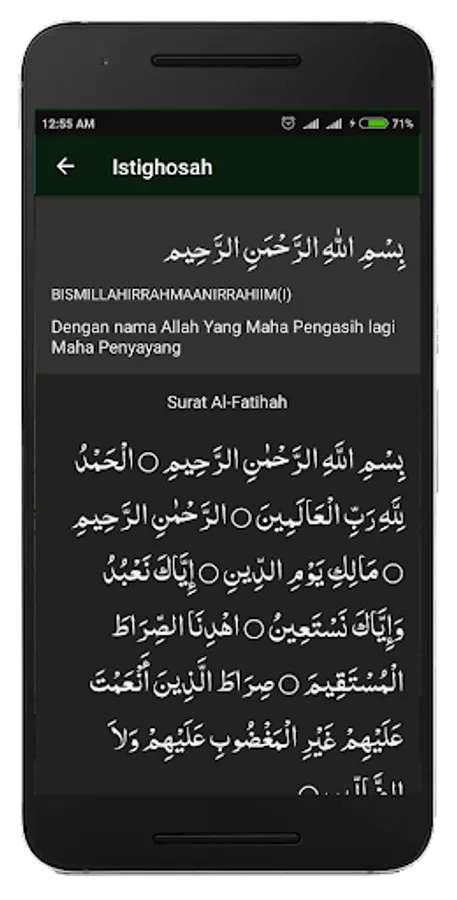 12:55 AM
71%
Istighosah
بِسْمِ اللهِ الرَّحْمَنِ الرَّحِيمِ
BISMILLAHIRRAHMAANIRRAHIIM(I)
Dengan nama Allah Yang Maha Pengasih lagi
Maha Penyayang
Surat Al-Fatihah
بِسْمِ اللَّهِ الرَّحْمٰنِ الرَّحِيمِ ○ الْحَمْدُ
لِلَّهِ رَبِّ الْعَالَمِينَ ○ الرَّحْمٰنِ الرَّحِيمِ
○ مَالِكِ يَوْمِ الدِّينِ ○ إِيَّاكَ نَعْبُدُ
وَإِيَّاكَ نَسْتَعِينُ ○ اهْدِنَا الصِّرَاطَ
الْمُسْتَقِيمَ ○ صِرَاطَ الَّذِينَ أَنْعَمْتَ
عَلَيْهِمْ غَيْرِ الْمَغْضُوبِ عَلَيْهِمْ وَلاَ